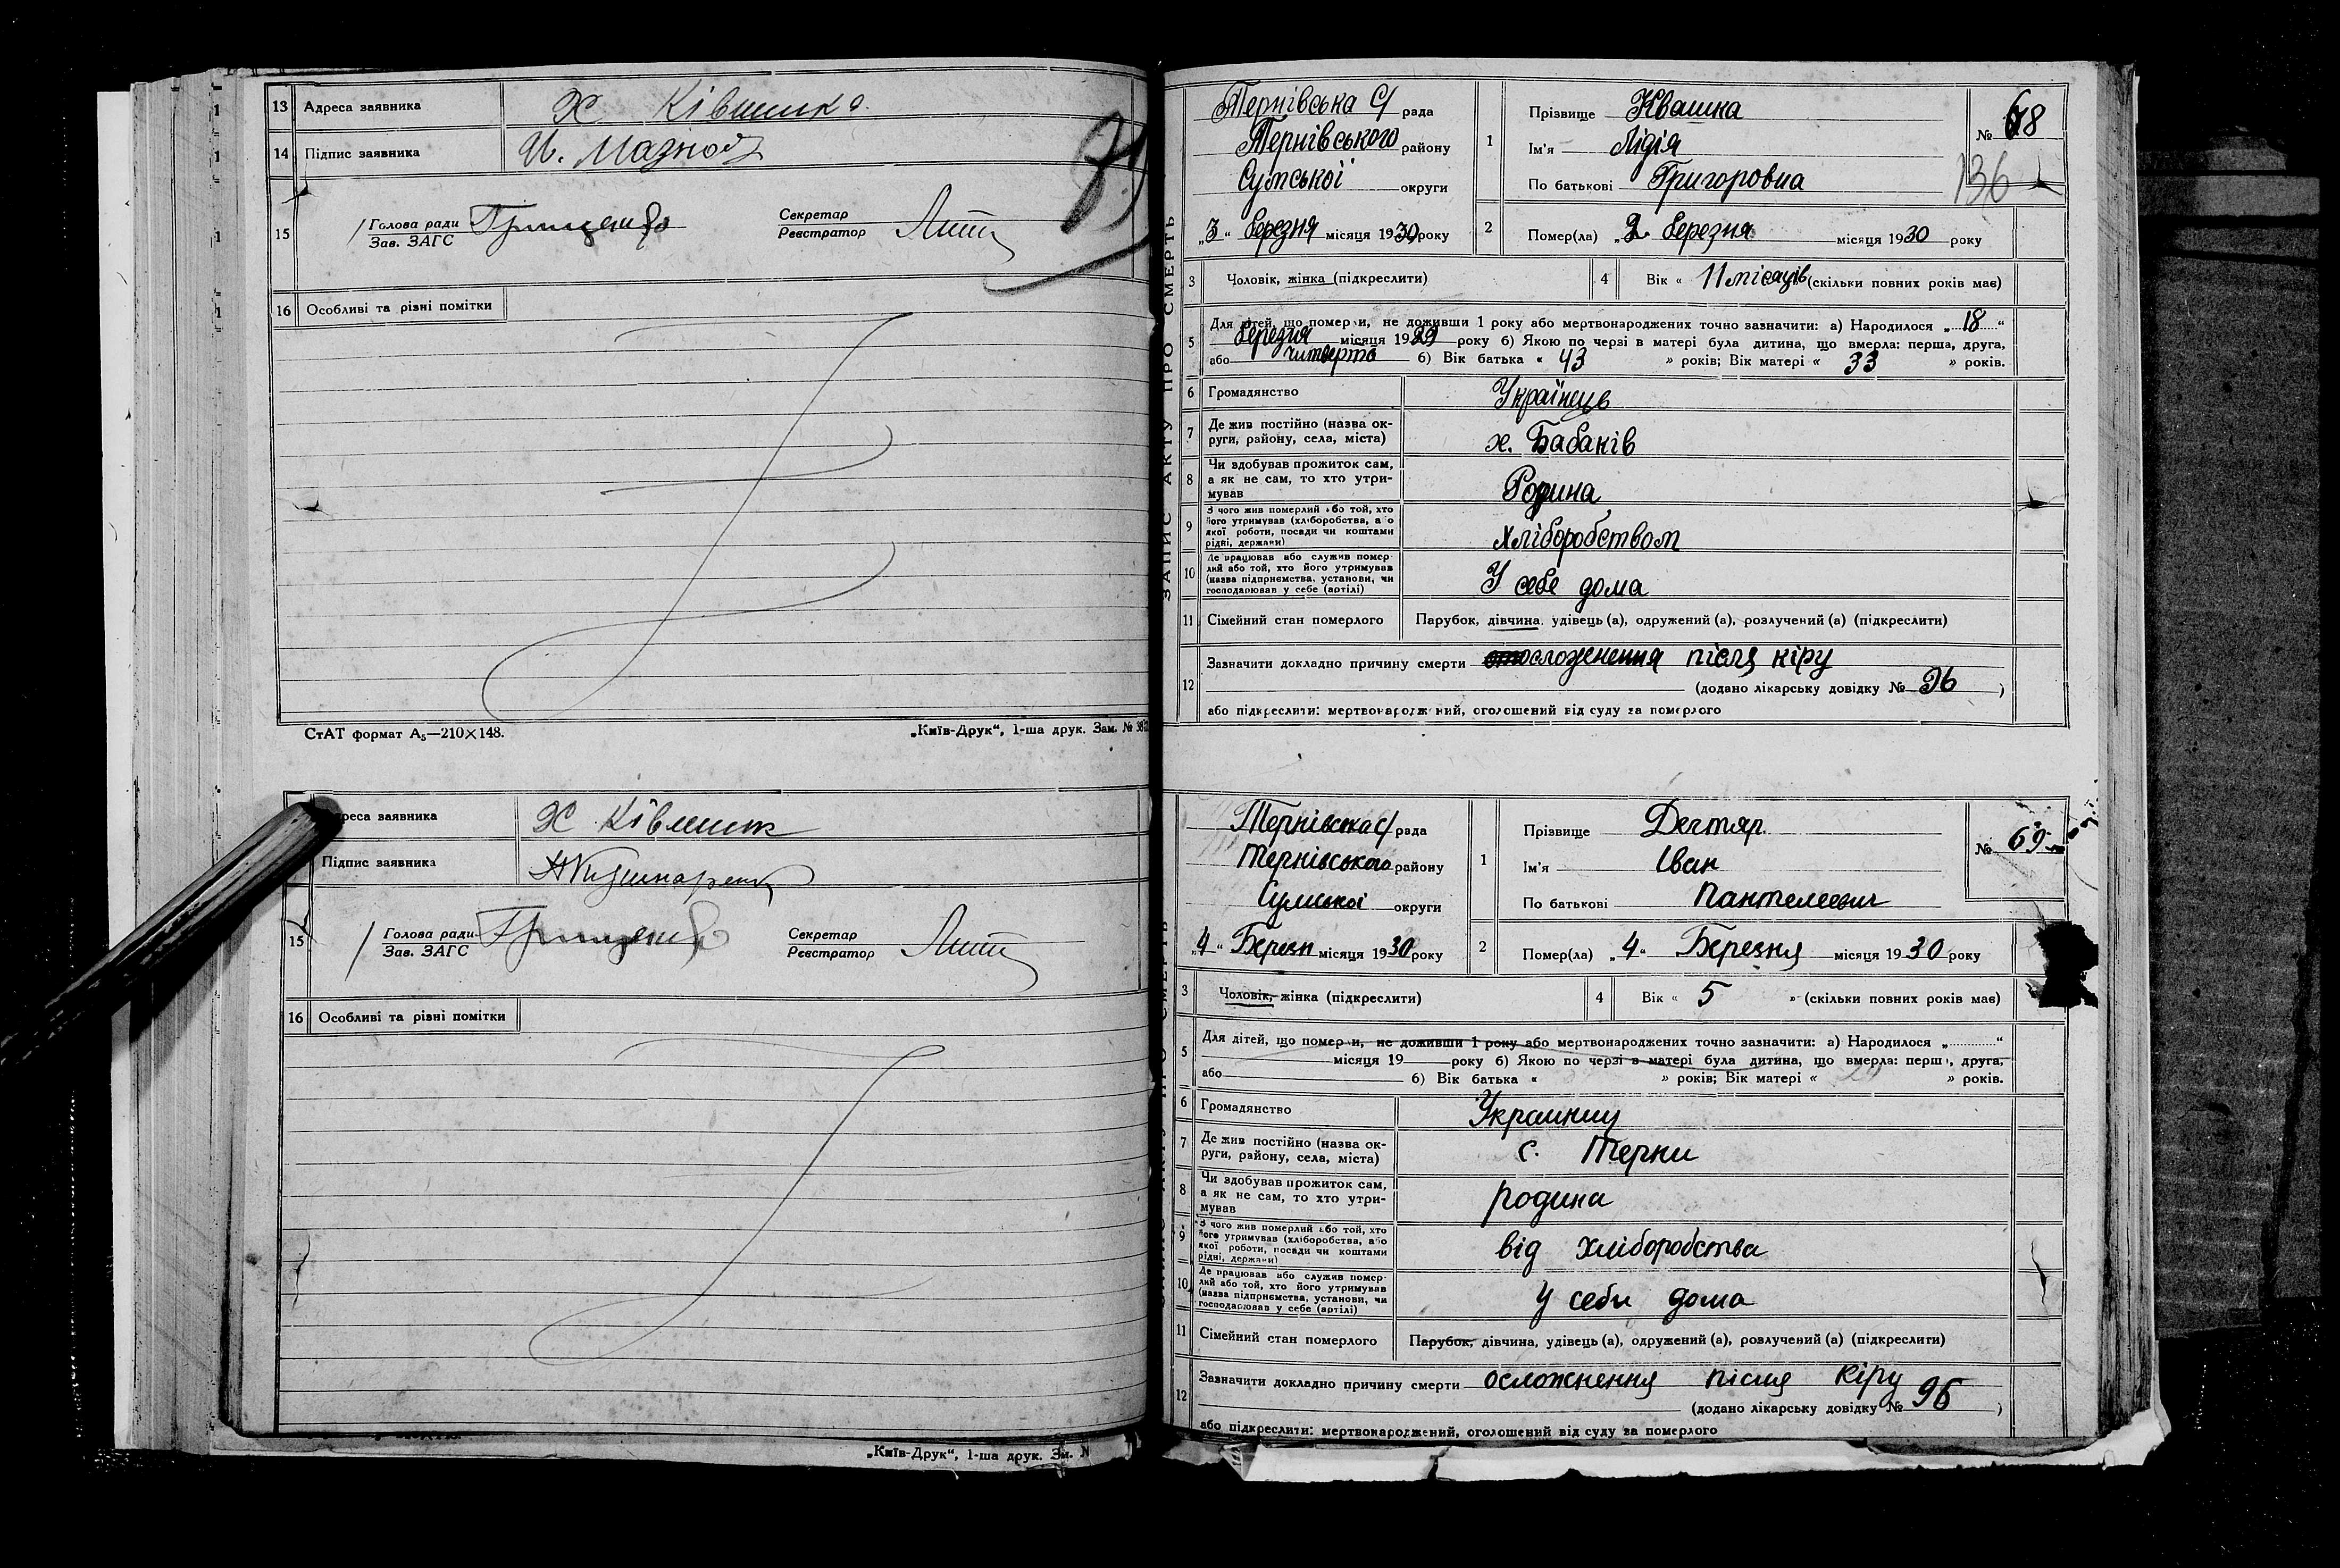 13 Адреса заявника Х Ківшика
14 Підпис заявника И. Мазной
15 Голова ради Грищенко Секретар
Зав. ЗАГС Реєстратор
16 Особливі та різні помітки
СтАТ формат А₅—210×148. „Київ-Друк“, 1-ша друк. Зам. № 38
Адреса заявника Х Ківшик
Підпис заявника
15 Голова ради Грищенко Секретар
Зав. ЗАГС Реєстратор
16 Особливі та різні помітки
„Київ-Друк“, 1-ша друк. Зам. №
ЗАПИС АКТУ ПРО СМЕРТЬ
Тернівська С/ рада
Тернівського району
Сумської округи
„3“ березня місяця 1930 року
1 Прізвище Квашка
Ім'я Лідія
По батькові Григоровна
№ 68
136
2 Помер(ла) „2 березня місяця 1930 року
3 Чоловік, жінка (підкреслити) 4 Вік « 11 місяців (скільки повних років має)
5 Для дітей, що померли, не доживши 1 року або мертвонароджених точно зазначити: а) Народилося „18“
березня місяця 1929 року б) Якою по черзі в матері була дитина, що вмерла: перша, друга,
або читверто б) Вік батька « 43 » років; Вік матері « 33 » років.
6 Громадянство Українець
7 Де жив постійно (назва ок-
руги, району, села, міста) х. Бабаків
8 Чи здобував прожиток сам,
а як не сам, то хто утри-
мував Родина
9 З чого жив померлий або той, хто
його утримував (хліборобства, або
якої роботи, посади чи коштами
рідні, держави) хліборобством
10 Де працював або служив помер-
лий або той, хто його утримував
(назва підприємства, установи, чи
господарював у себе (артілі) У себе дома
11 Сімейний стан померлого Парубок, дівчина, удівець (а), одружений (а), розлучений (а) (підкреслити)
12 Зазначити докладно причину смерти осложнення після кіру
(додано лікарську довідку № 96 )
або підкреслити: мертвонароджений, оголошений від суду за померлого
Тернівська с/ рада
Тернівського району
Сумської округи
„4“ Березн місяця 1930 року
1 Прізвище Дегтяр
Ім'я Іван
По батькові Пантелеевич
№ 69
2 Помер(ла) „4“ Березня місяця 1930 року
3 Чоловік, жінка (підкреслити) 4 Вік « 5 » (скільки повних років має)
5 Для дітей, що померли, не доживши 1 року або мертвонароджених точно зазначити: а) Народилося „ “
місяця 19 року б) Якою по черзі в матері була дитина, що вмерла: перша, друга,
або б) Вік батька « » років; Вік матері « » років.
6 Громадянство
7 Де жив постійно (назва ок-
руги, району, села, міста) с. Терни
8 Чи здобував прожиток сам,
а як не сам, то хто утри-
мував родина
9 З чого жив померлий або той, хто
його утримував (хліборобства, або
якої роботи, посади чи коштами
рідні, держави) від хліборобства
10 Де працював або служив помер-
лий або той, хто його утримував
(назва підприємства, установи, чи
господарював у себе (артілі) у себи дома
11 Сімейний стан померлого Парубок, дівчина, удівець (а), одружений (а), розлучений (а) (підкреслити)
12 Зазначити докладно причину смерти осложнення після кіру
(додано лікарську довідку № 96 )
або підкреслити: мертвонароджений, оголошений від суду за померлого